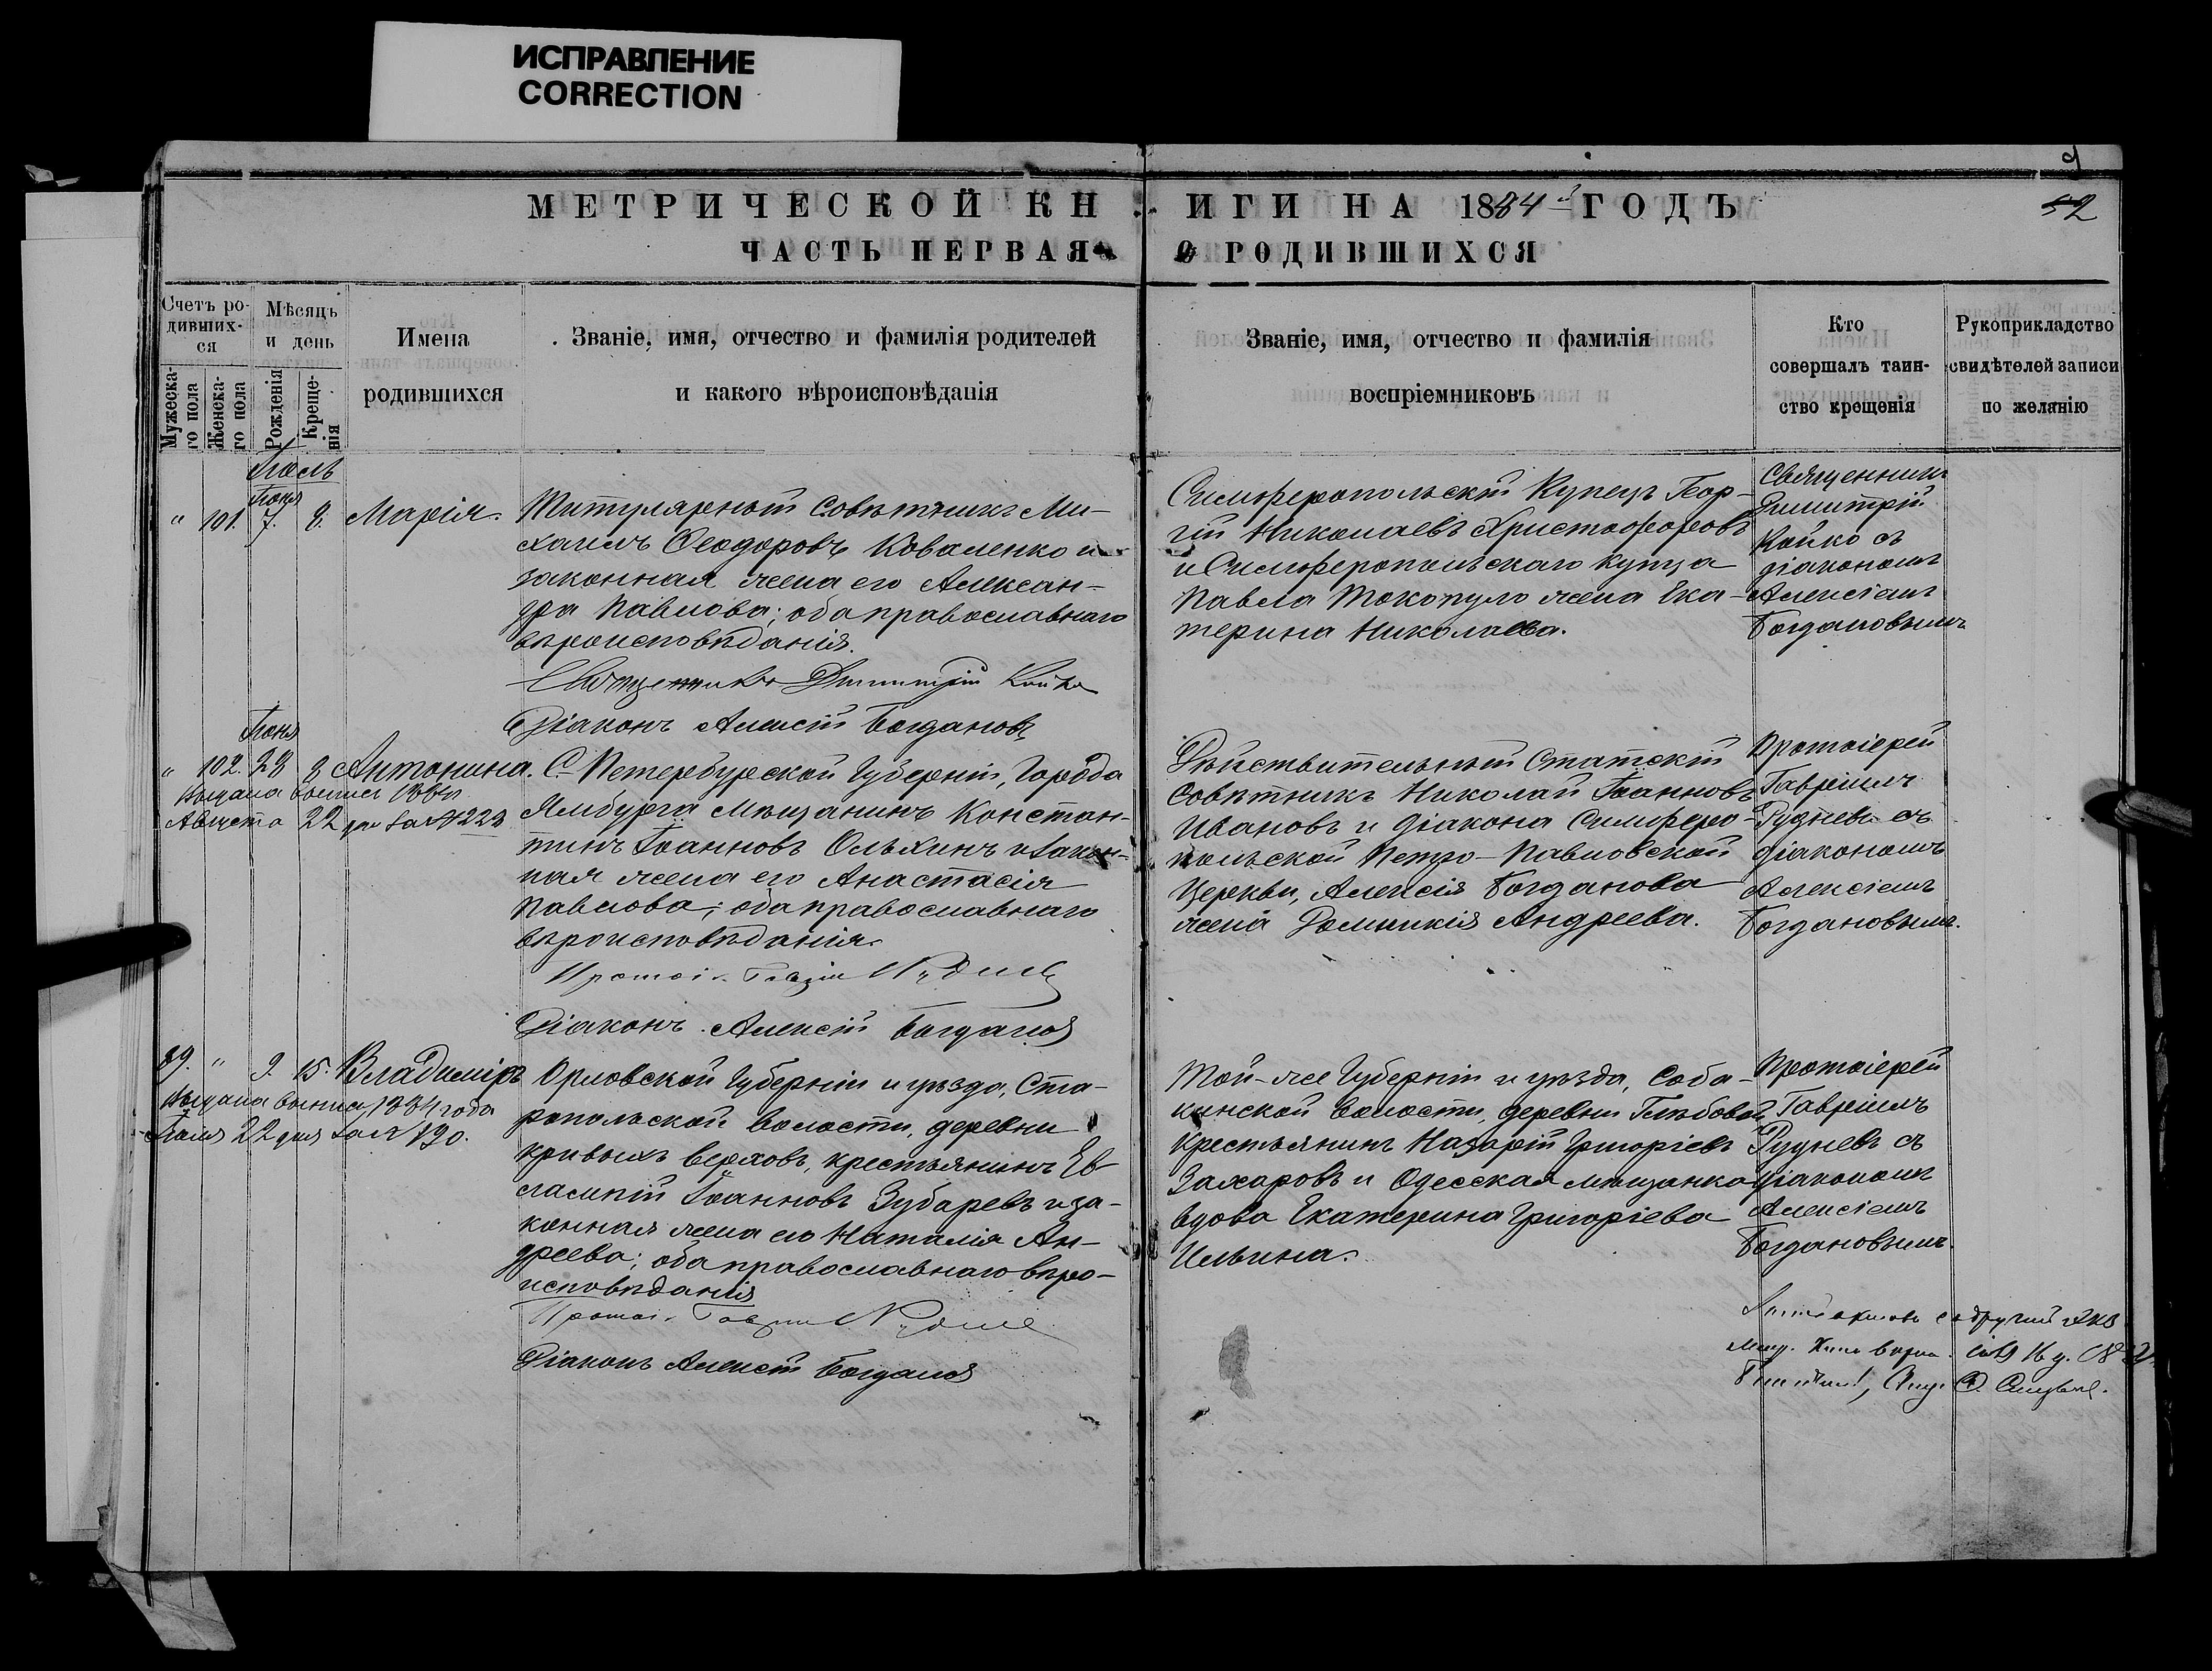 ИСПРАВЛЕНИЕ
CORRECTION
9
МЕТРИЧЕСКОЙ КНИГИ НА 1884й ГОДЪ
52
ЧАСТЬ ПЕРВАЯ О РОДИВШИХСЯ
Счетъ ро-
дивших-
ся
Мужеска-
го пола
Женска-
го пола
Мѣсяцъ
и день
Рожденія
Креще-
нія
Имена
родившихся
Званіе, имя, отчество и фамилія родителей
и какого вѣроисповѣданія
Званіе, имя, отчество и фамилія
воспріемниковъ
Кто
совершалъ таин-
ство крещенія
Рукоприкладство
свидѣтелей записи
по желанію
Іюль
Іюня
" 101. 7. 8. Марія.
Титулярный Совѣтникъ Ми-
хаилъ Ѳеодоровъ Коваленко и
законная жена его Алексан-
дра Павлова; оба православнаго
вѣроисповѣданія.
Священникъ Димитрій Койко
Діаконъ Алексій Богдановъ
Симферопольскій Купецъ Геор-
гій Николаевъ Христофоровъ
и Симферопольскаго купца
Павла Токопуло жена Ека-
терина Николаева.
Священникъ
Димитрій
Койко съ
діакономъ
Алексіемъ
Богдановымъ
Іюня
" 102. 28 8 Антонина.
Выдана выпись 1884
Августа 22 дня за № 223
С-Петербургской Губерніи, Города
Ямбурга мѣщанинъ Констан-
тинъ Іоанновъ Ольхинъ и закон-
ная жена его Анастасія
Павлова; оба православнаго
вѣроисповѣданія.
Протоі. Гавріил Рудневъ
Діаконъ Алексій Богданов
Дѣйствительный Статскій
Совѣтникъ Николай Іоанновъ
Ивановъ и діакона Симферо-
польской Петро-Павловской
Церкви, Алексія Богданова
жена Домникія Андреева.
Протоіерей
Гавріилъ
Рудневъ съ
діакономъ
Алексіемъ
Богдановымъ.
89. " 9. 15. Владиміръ
Выдана выпись 1884 года
Іюля 22 дня за № 190.
Орловской Губерніи и уѣзда, Ста-
ропольской волости, деревни
Кривыхъ Верховъ, крестьянинъ Ев-
лампій Іоанновъ Зубаревъ и за-
конная жена его Наталія Ан-
дреева; оба православнаго вѣро-
исповѣданія
Протоі. Гавріил Руднев
Діаконъ Алексій Богданов
Той-же Губерніи и уѣзда, Соба-
кинской волости, деревни Глѣбовой,
крестьянинъ Назарій Григоріевъ
Захаровъ и Одесская мѣщанка
вдова Екатерина Григоріева
Ильина.
Протоіерей
Гавріилъ
Рудневъ съ
діакономъ
Алексіемъ
Богдановымъ.